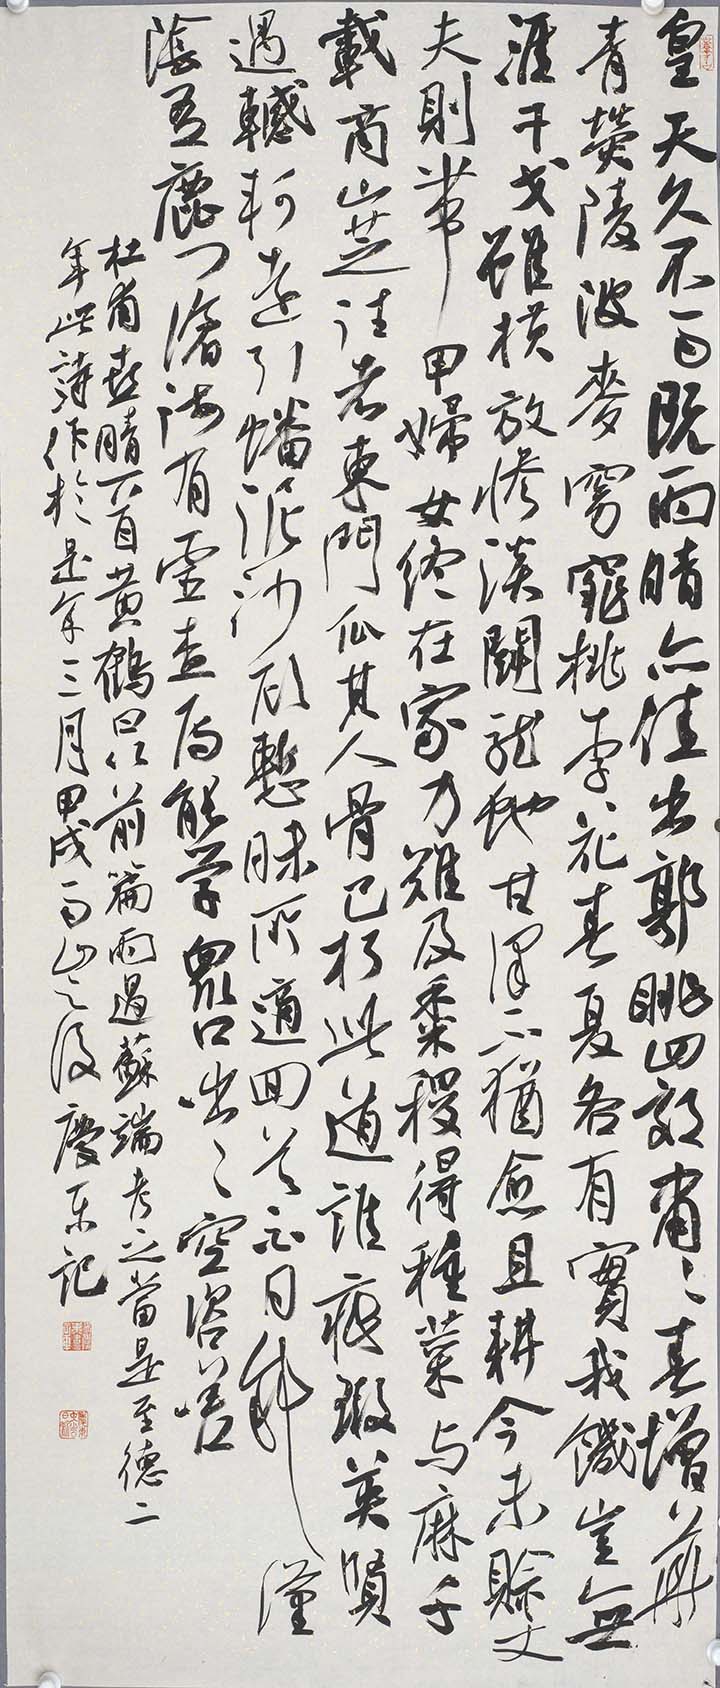 皇天久不雨既雨晴亦佳出郭眺四郊肅〻春增華
青熒陵陂麥窈窕桃李花春夏各有實我饑豈無
涯干戈雖橫放慘淡鬭龍蛇甘澤不猶愈且耕今未賒丈
夫則帶甲婦女終在家力難及黍稷得種菜與麻千
載商山芝往者東門瓜其人骨已朽此道誰疵瑕英賢
遇轗軻遠引蟠泥沙顧慙昧所適回首白日斜漢
陰有鹿門滄海有靈查焉能學眾口咄〻空咨嗟
杜甫喜晴 黃鶴曰以前篇雨過蘇端考之當是至德二
年此詩作於是年三月甲戌雨止之後慶東記